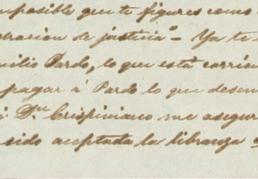 imposible que te figures como
tración de justicia" - Ya te
milio Pardo, lo que está corri
pagar a Pardo lo que desem
Dn Crispiniano me asegur
sido aceptada la libranza